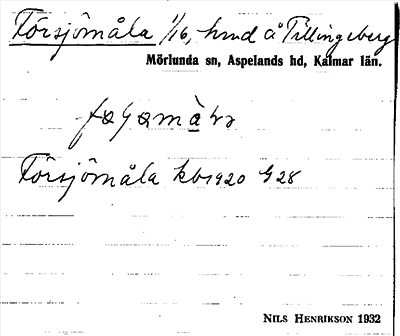 Försjömåla 1/16, hmd å Tillingeberg
Mörlunda sn, Aspelands hd, Kalmar län.
Försjömåla kb1920 § 28
NILS HENRIKSON 1932